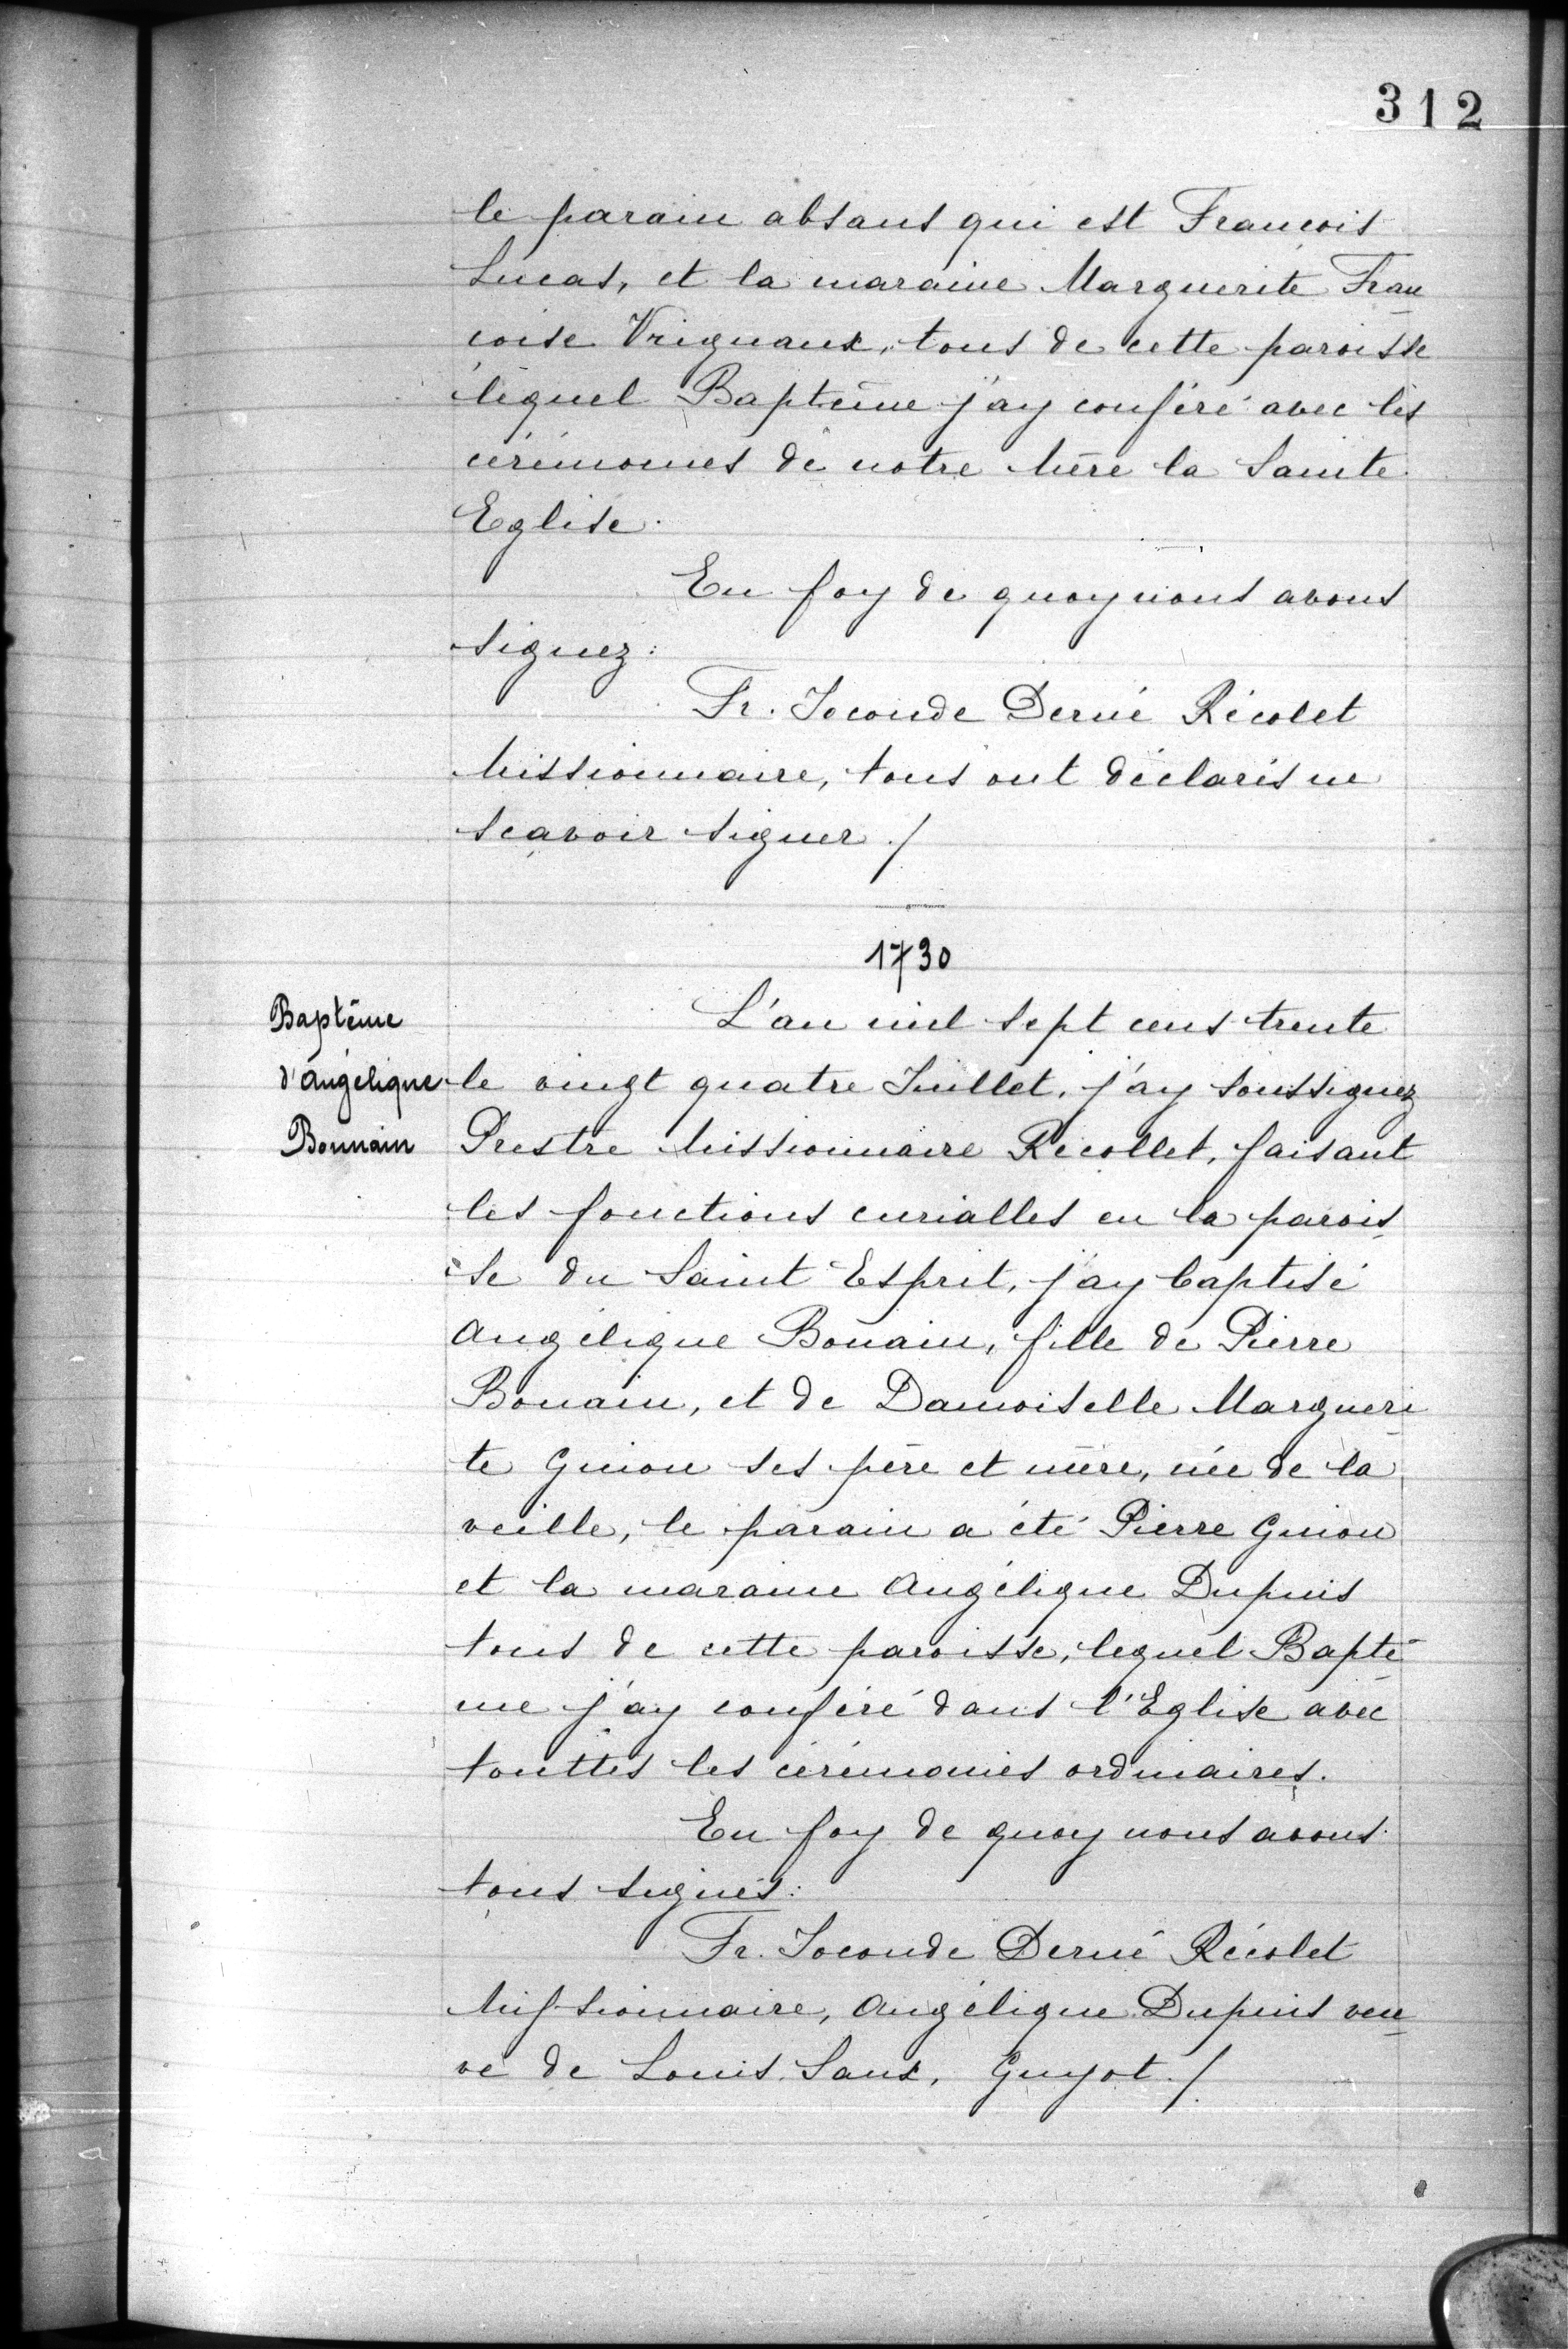 312
le parain absans qui est Francois
Lucas, et la maraine Marguerite Fran
coise Vrignaux, tous de cette paroisse
lequel Baptême j'ay conféré avec les
cérémonies de notre Mère la Sainte
Eglise.
En foy de quoy nous avons
signez:
Fr. Joconde Dernée Récolet
Missionnaire, tous ont déclarés ne
scavoir signer ./
1730
Baptême
d'Angélique
Bonnain
L'an mil sept cens trente
le vingt quatre Juillet, j'ay soussignez
Prestre Missionnaire Recollet, faisant
les fonctions curialles en la parois
se du Saint Esprit, j'ay baptisé
Angélique Bonain, fille de Pierre
Bonain, et de Damoiselle Margueri
te Guion ses père et mère, née de la
veille, le parain a été Pierre Guion
et la maraine Angélique Dupuis
tous de cette paroisse, lequel Baptê
me j'ay conféré dans l'Eglise avec
touttes les cérémonies ordinaires.
En foy de quoy nous avons
tous signés:
Fr. Joconde Dernée Récolet
Missionnaire, Angélique Dupuis veu
ve de Louis Saux, Guyot ./